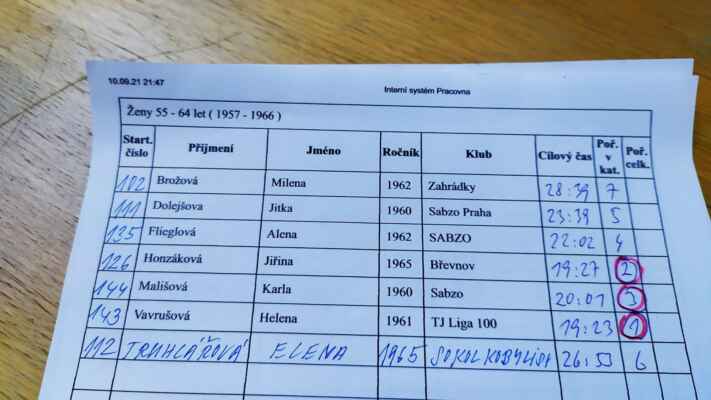 10.09.21 21:47 Interní systém Pracovna
Ženy 55 - 64 let ( 1957 - 1966 )
Start. číslo Příjmení Jméno Ročník Klub Cílový čas Poř. v kat. Poř. celk.
102 Brožová Milena 1962 Zahrádky 28:39 7
111 Dolejšova Jitka 1960 Sabzo Praha 23:39 5
135 Flieglová Alena 1962 SABZO 22:02 4
126 Honzáková Jiřina 1965 Břevnov 19:27 2
144 Mališová Karla 1960 Sabzo 20:01 3
143 Vavrušová Helena 1961 TJ Liga 100 19:23 1
112 TRUHLÁŘOVÁ ELENA 1965 SOKOL KOBYLISY 26:53 6